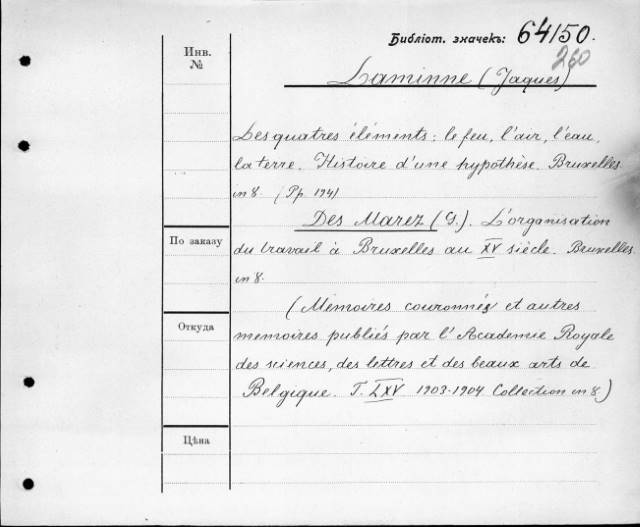 Библіот. значекъ: 64/50.
260
Инв.
№
Laminne (Jaques)
Les quatres éléments: le feu, l'air, l'eau,
la terre. Histoire d'une hypothèse. Bruxelles
in 8. (Pp. 194)
Des Marez (G.). L'organisation
По заказу
du travail à Bruxelles au XV siècle. Bruxelles
in 8.
(Mémoires couronnés et autres
Откуда
memoires publiés par l'Academie Royale
des sciences, des lettres et des beaux arts de
Belgique. T. LXV 1903-1904 Collection in 8)
Цѣна